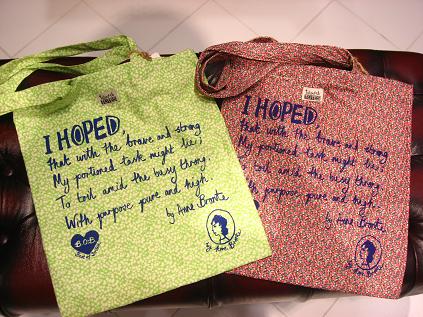 I HOPED,
that with the brave and strong
My portioned task might lie;
To toil amid the busy throng,
With purpose pure and high.
by Anne Bronte
B.O.B
I HOPED
that with the brave and strong
My portioned task might lie;
To toil amid the busy throng,
With purpose pure and high.
by Anne Bronte